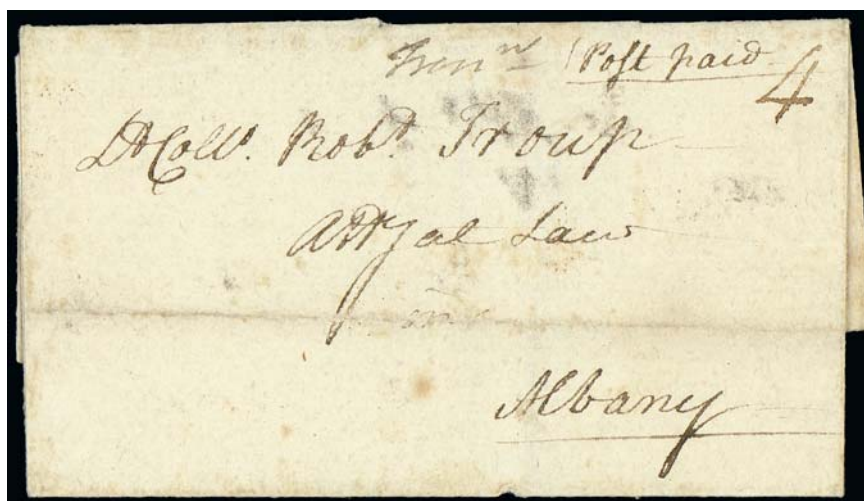 Trenⁿ Post paid 4
Lt Collᵒ. Robᵗ. Troup
Atty at Law
in
Albany